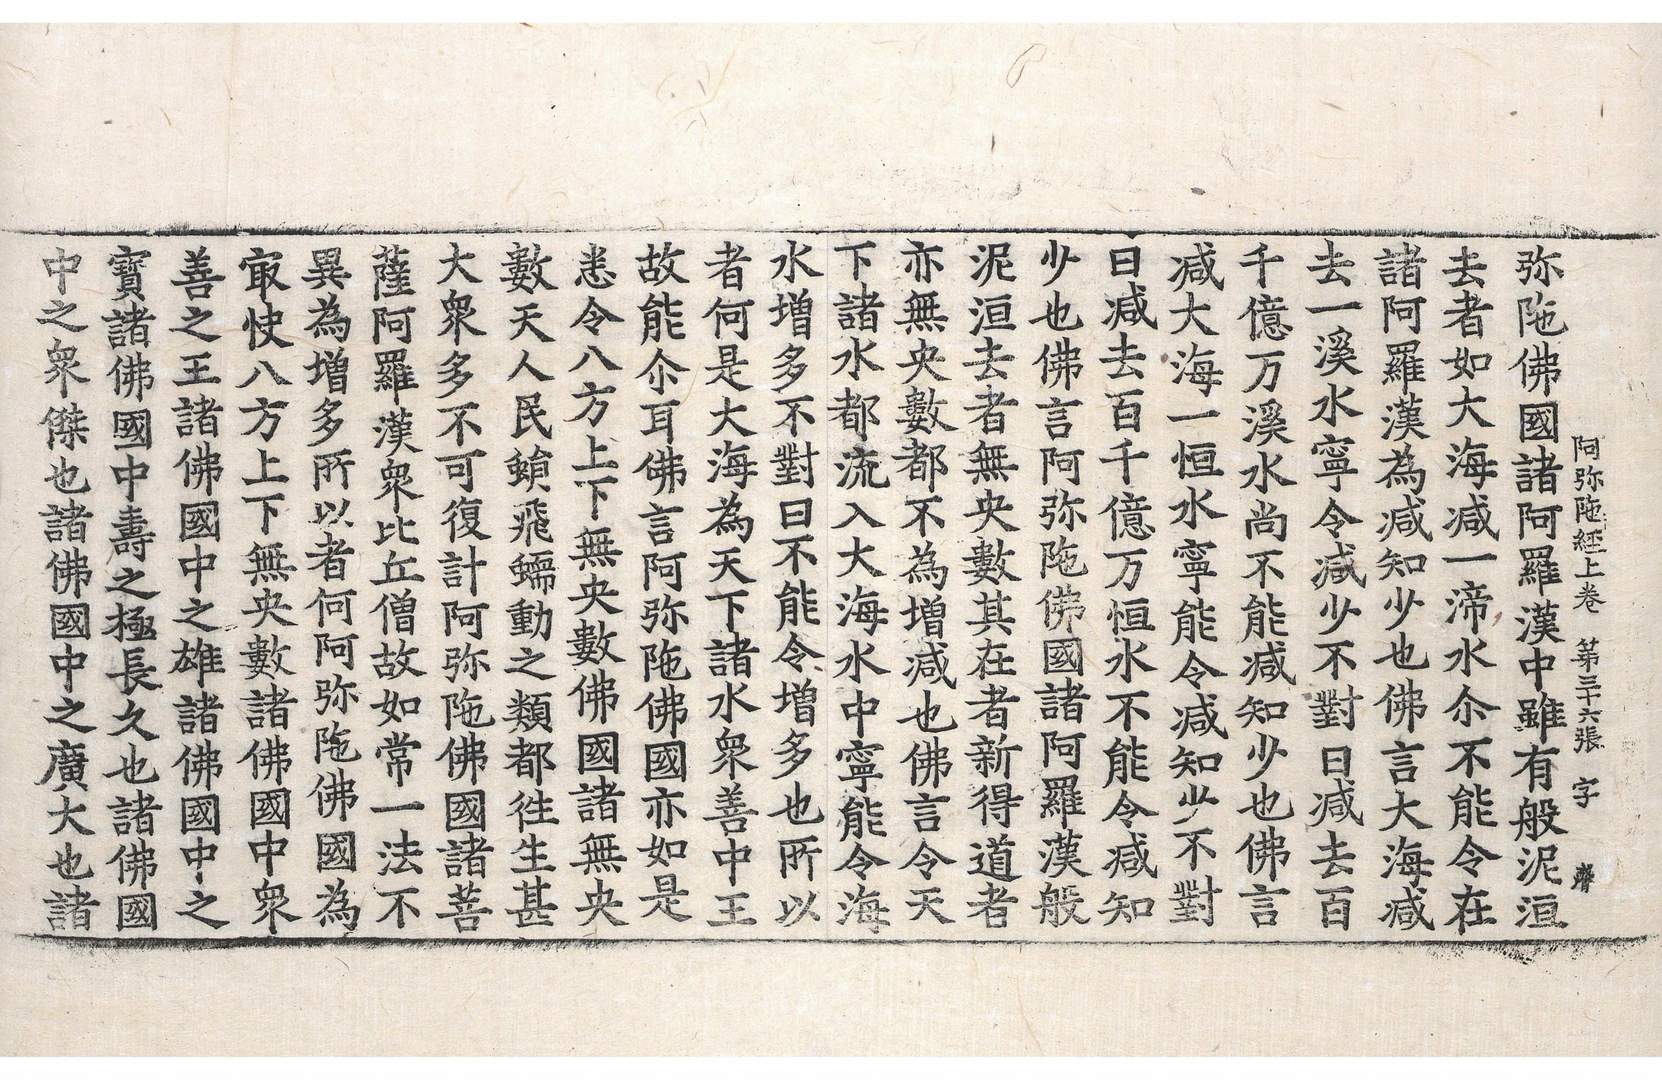 阿弥陁經上卷 第三十六張 字
弥陁佛國諸阿羅漢中雖有般泥洹
去者如大海减一渧水尒不能令在
諸阿羅漢為减知少也佛言大海减
去一溪水寧令减少不對曰减去百
千億万溪水尚不能减知少也佛言
减大海一恒水寧能令减知少不對
曰减去百千億万恒水不能令减知
少也佛言阿弥陁佛國諸阿羅漢般
泥洹去者無央數其在者新得道者
亦無央數都不為增减也佛言令天
下諸水都流入大海水中寧能令海
水增多不對曰不能令增多也所以
者何是大海為天下諸水衆善中王
故能尒耳佛言阿弥陁佛國亦如是
悉令八方上下無央數佛國諸無央
數天人民蜎飛蠕動之類都徃生甚
大衆多不可復計阿弥陁佛國諸菩
薩阿羅漢衆比丘僧故如常一法不
異為增多所以者何阿弥陁佛國為
㝡快八方上下無央數諸佛國中衆
善之王諸佛國中之雄諸佛國中之
寶諸佛國中壽之極長久也諸佛國
中之衆傑也諸佛國中之廣大也諸